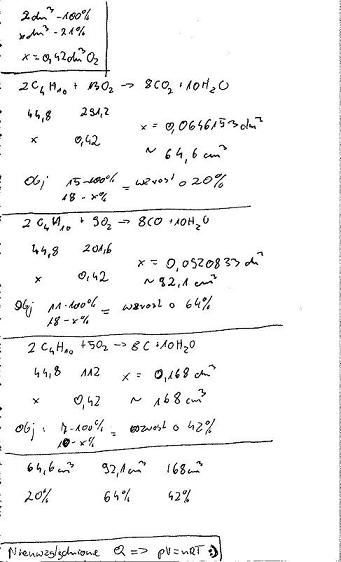 2dm³ - 100%
xdm³ - 21%
x = 0,42dm³ O₂
2C₄H₁₀ + 13O₂ → 8CO₂ + 10H₂O
44,8 291,2
x 0,42
x = 0,0646153 dm³
~ 64,6 cm³
Obj 15 - 100% = wzrost o 20%
18 - x%
2C₄H₁₀ + 9O₂ → 8CO + 10H₂O
44,8 201,6
x 0,42
x = 0,0920833 dm³
~ 92,1 cm³
Obj 11 - 100% = wzrost o 64%
18 - x%
2C₄H₁₀ + 5O₂ → 8C + 10H₂O
44,8 112 x = 0,168 dm³
x 0,42 ~ 168 cm³
Obj: 7 - 100% = wzrost o 42%
10 - x%
64,6cm³ 92,1cm³ 168cm³
20% 64% 42%
Nieuwzględnione Q => pV=nRT :)